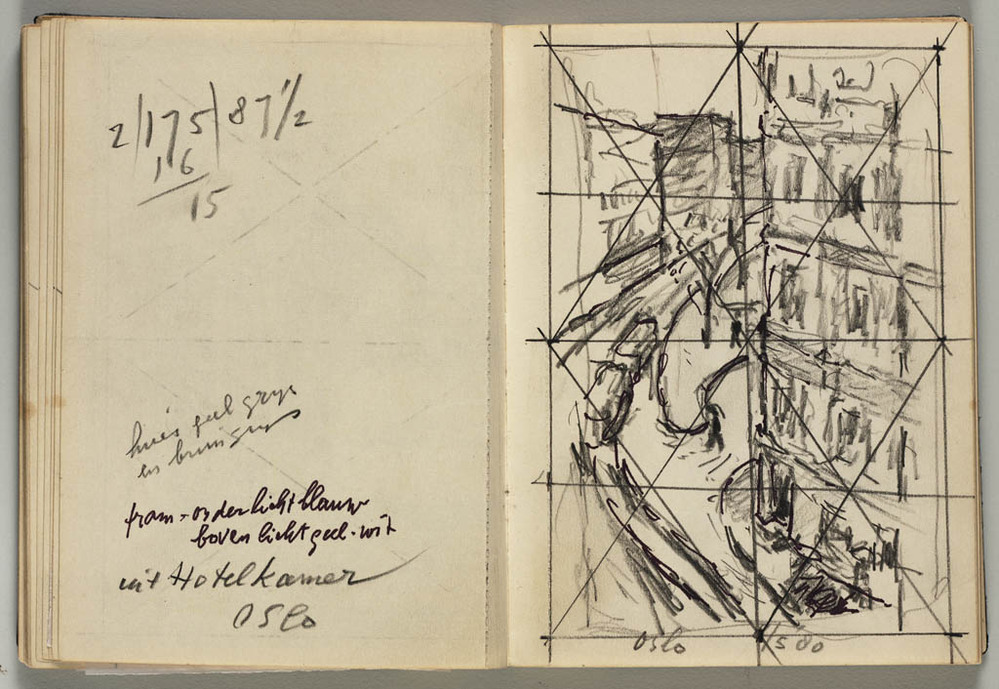 2/175\87½
16
15
huis geel grijs
en bruingrijs
tram-onder licht blauw
boven licht geel-wit
uit Hotelkamer
OSlo
Oslo